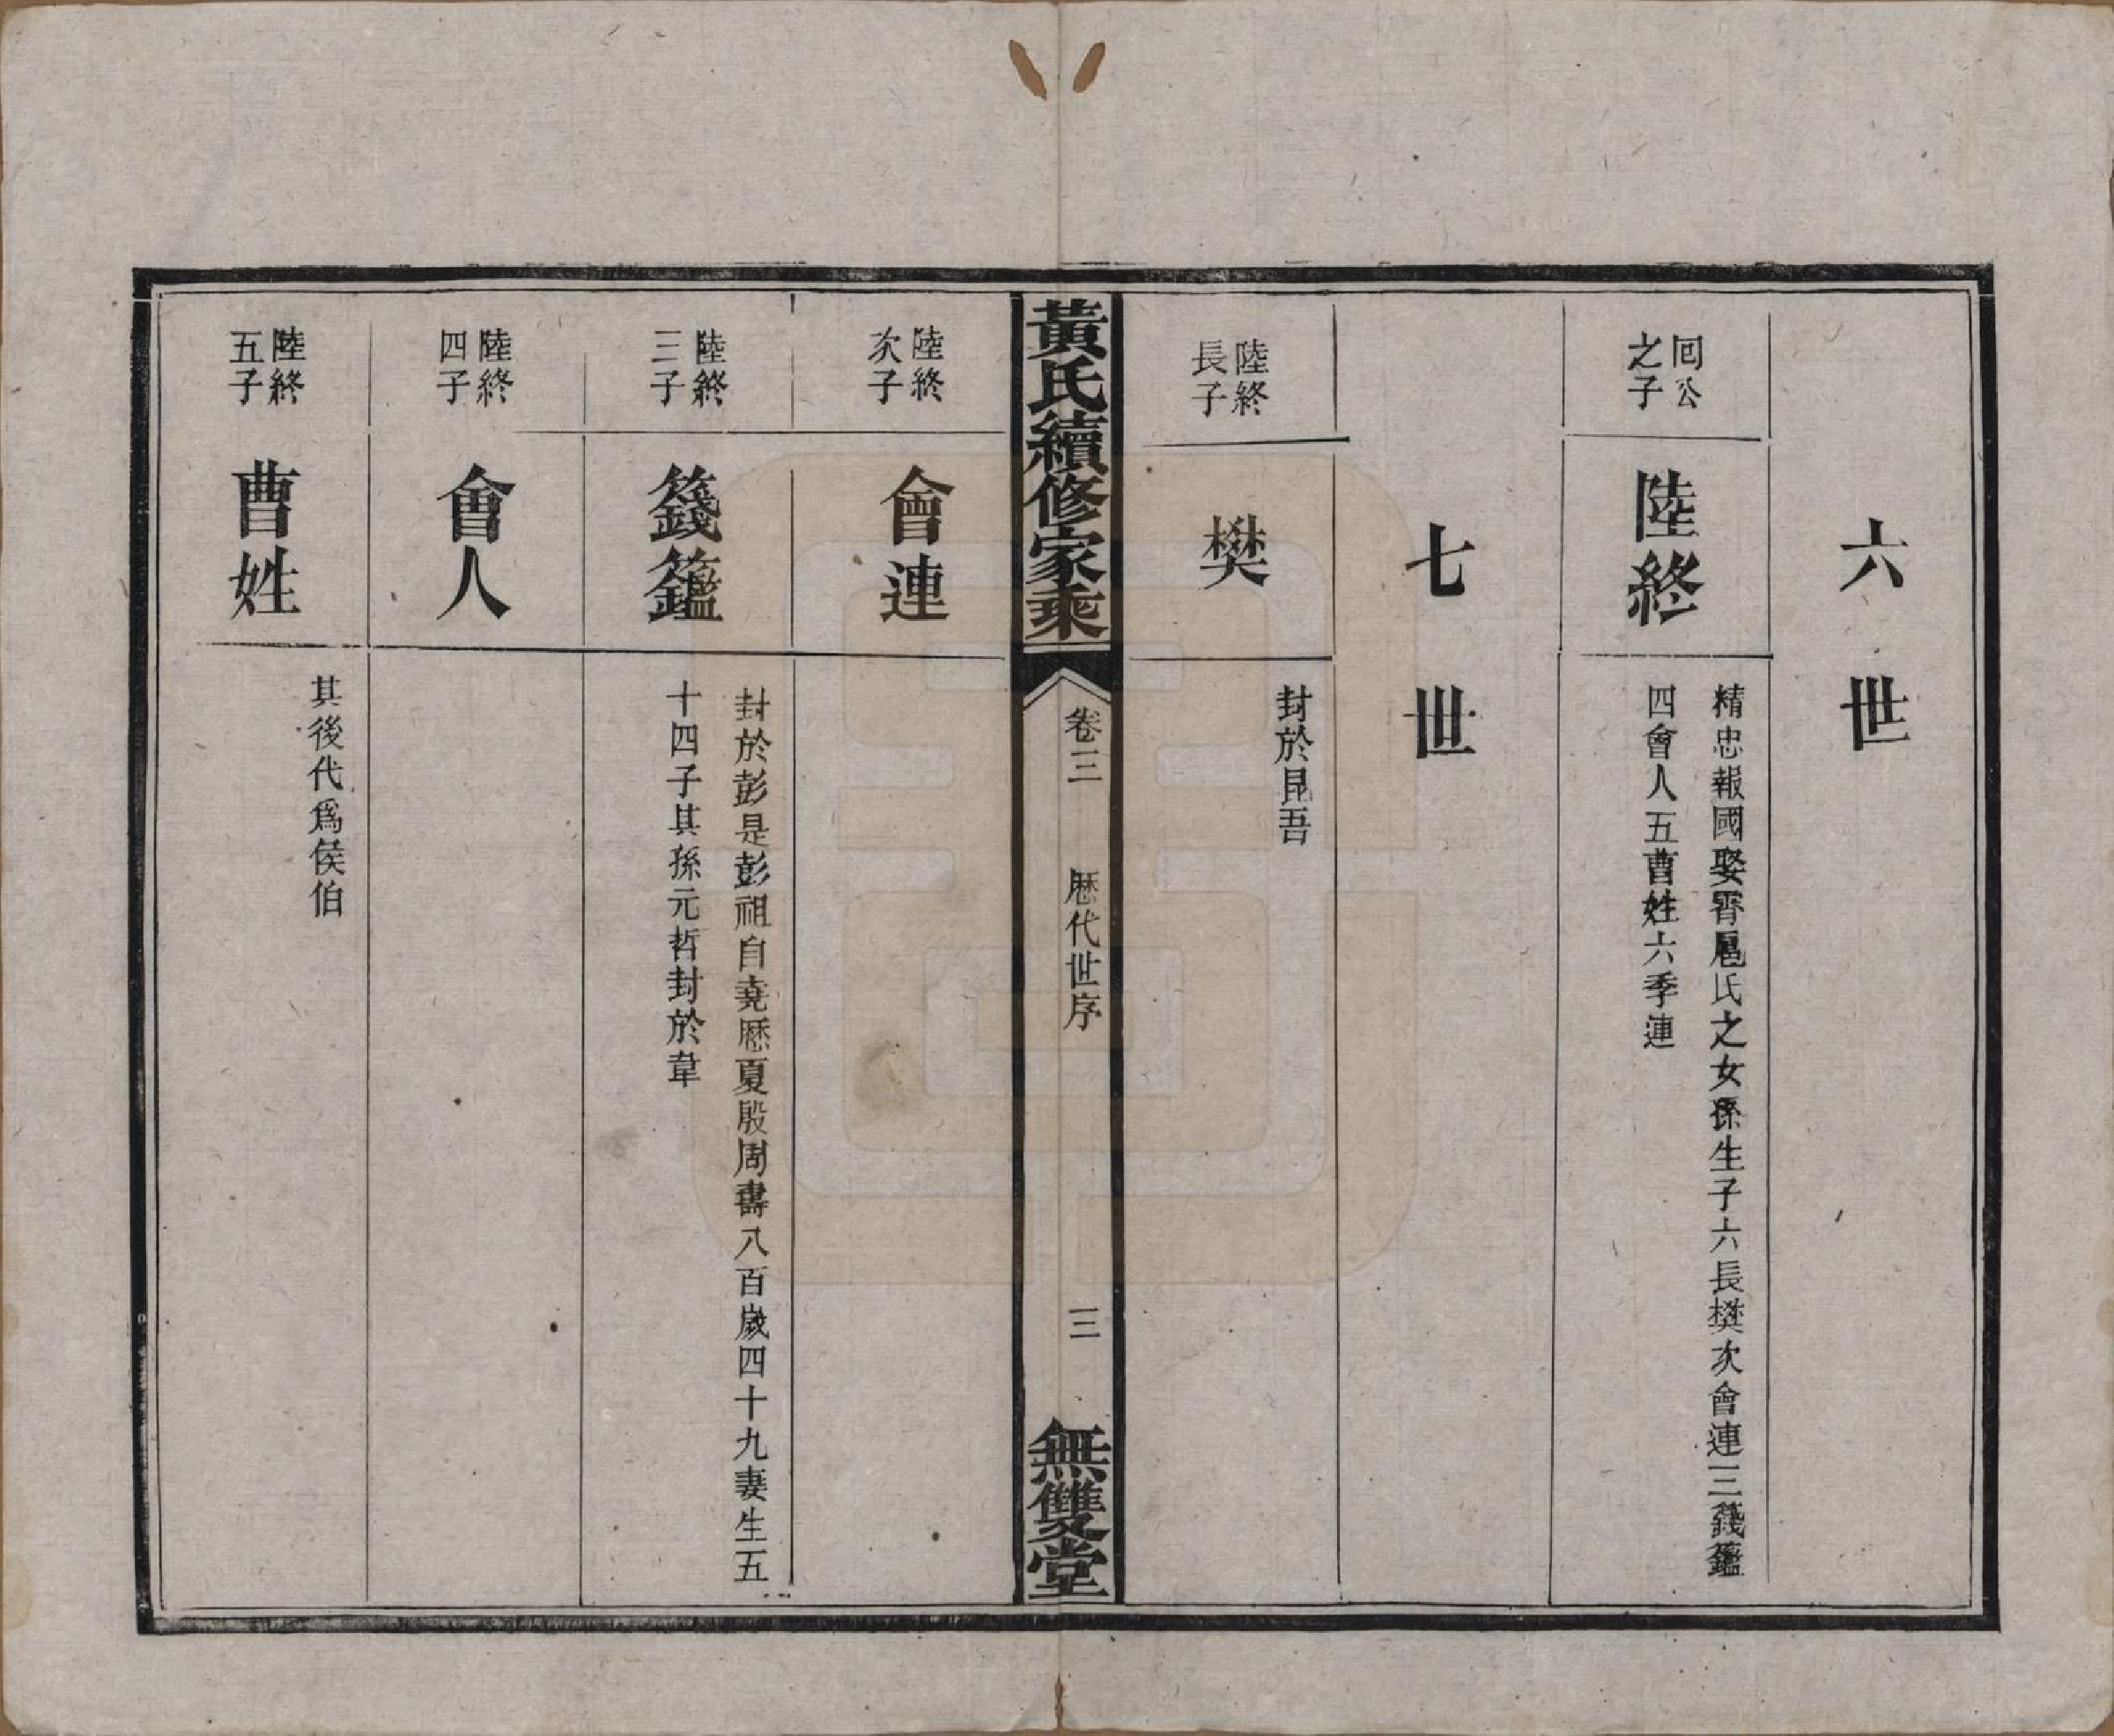 六世
回公
之子
陸終
精忠報國娶胥鳳氏之女孫生子六長樊次會連三籛鑑
四會人五曹姓六季連
七世
陸終
長子
樊
封於昆吾
黃氏續修家乘
卷三
歷代世序
三
無雙堂
陸終
次子
會連
陸終
三子
籛鑑
封於彭是彭祖自堯歷夏殷周壽八百歲四十九妻生五
十四子其孫元哲封於韋
陸終
四子
會人
陸終
五子
曹姓
其後代爲侯伯